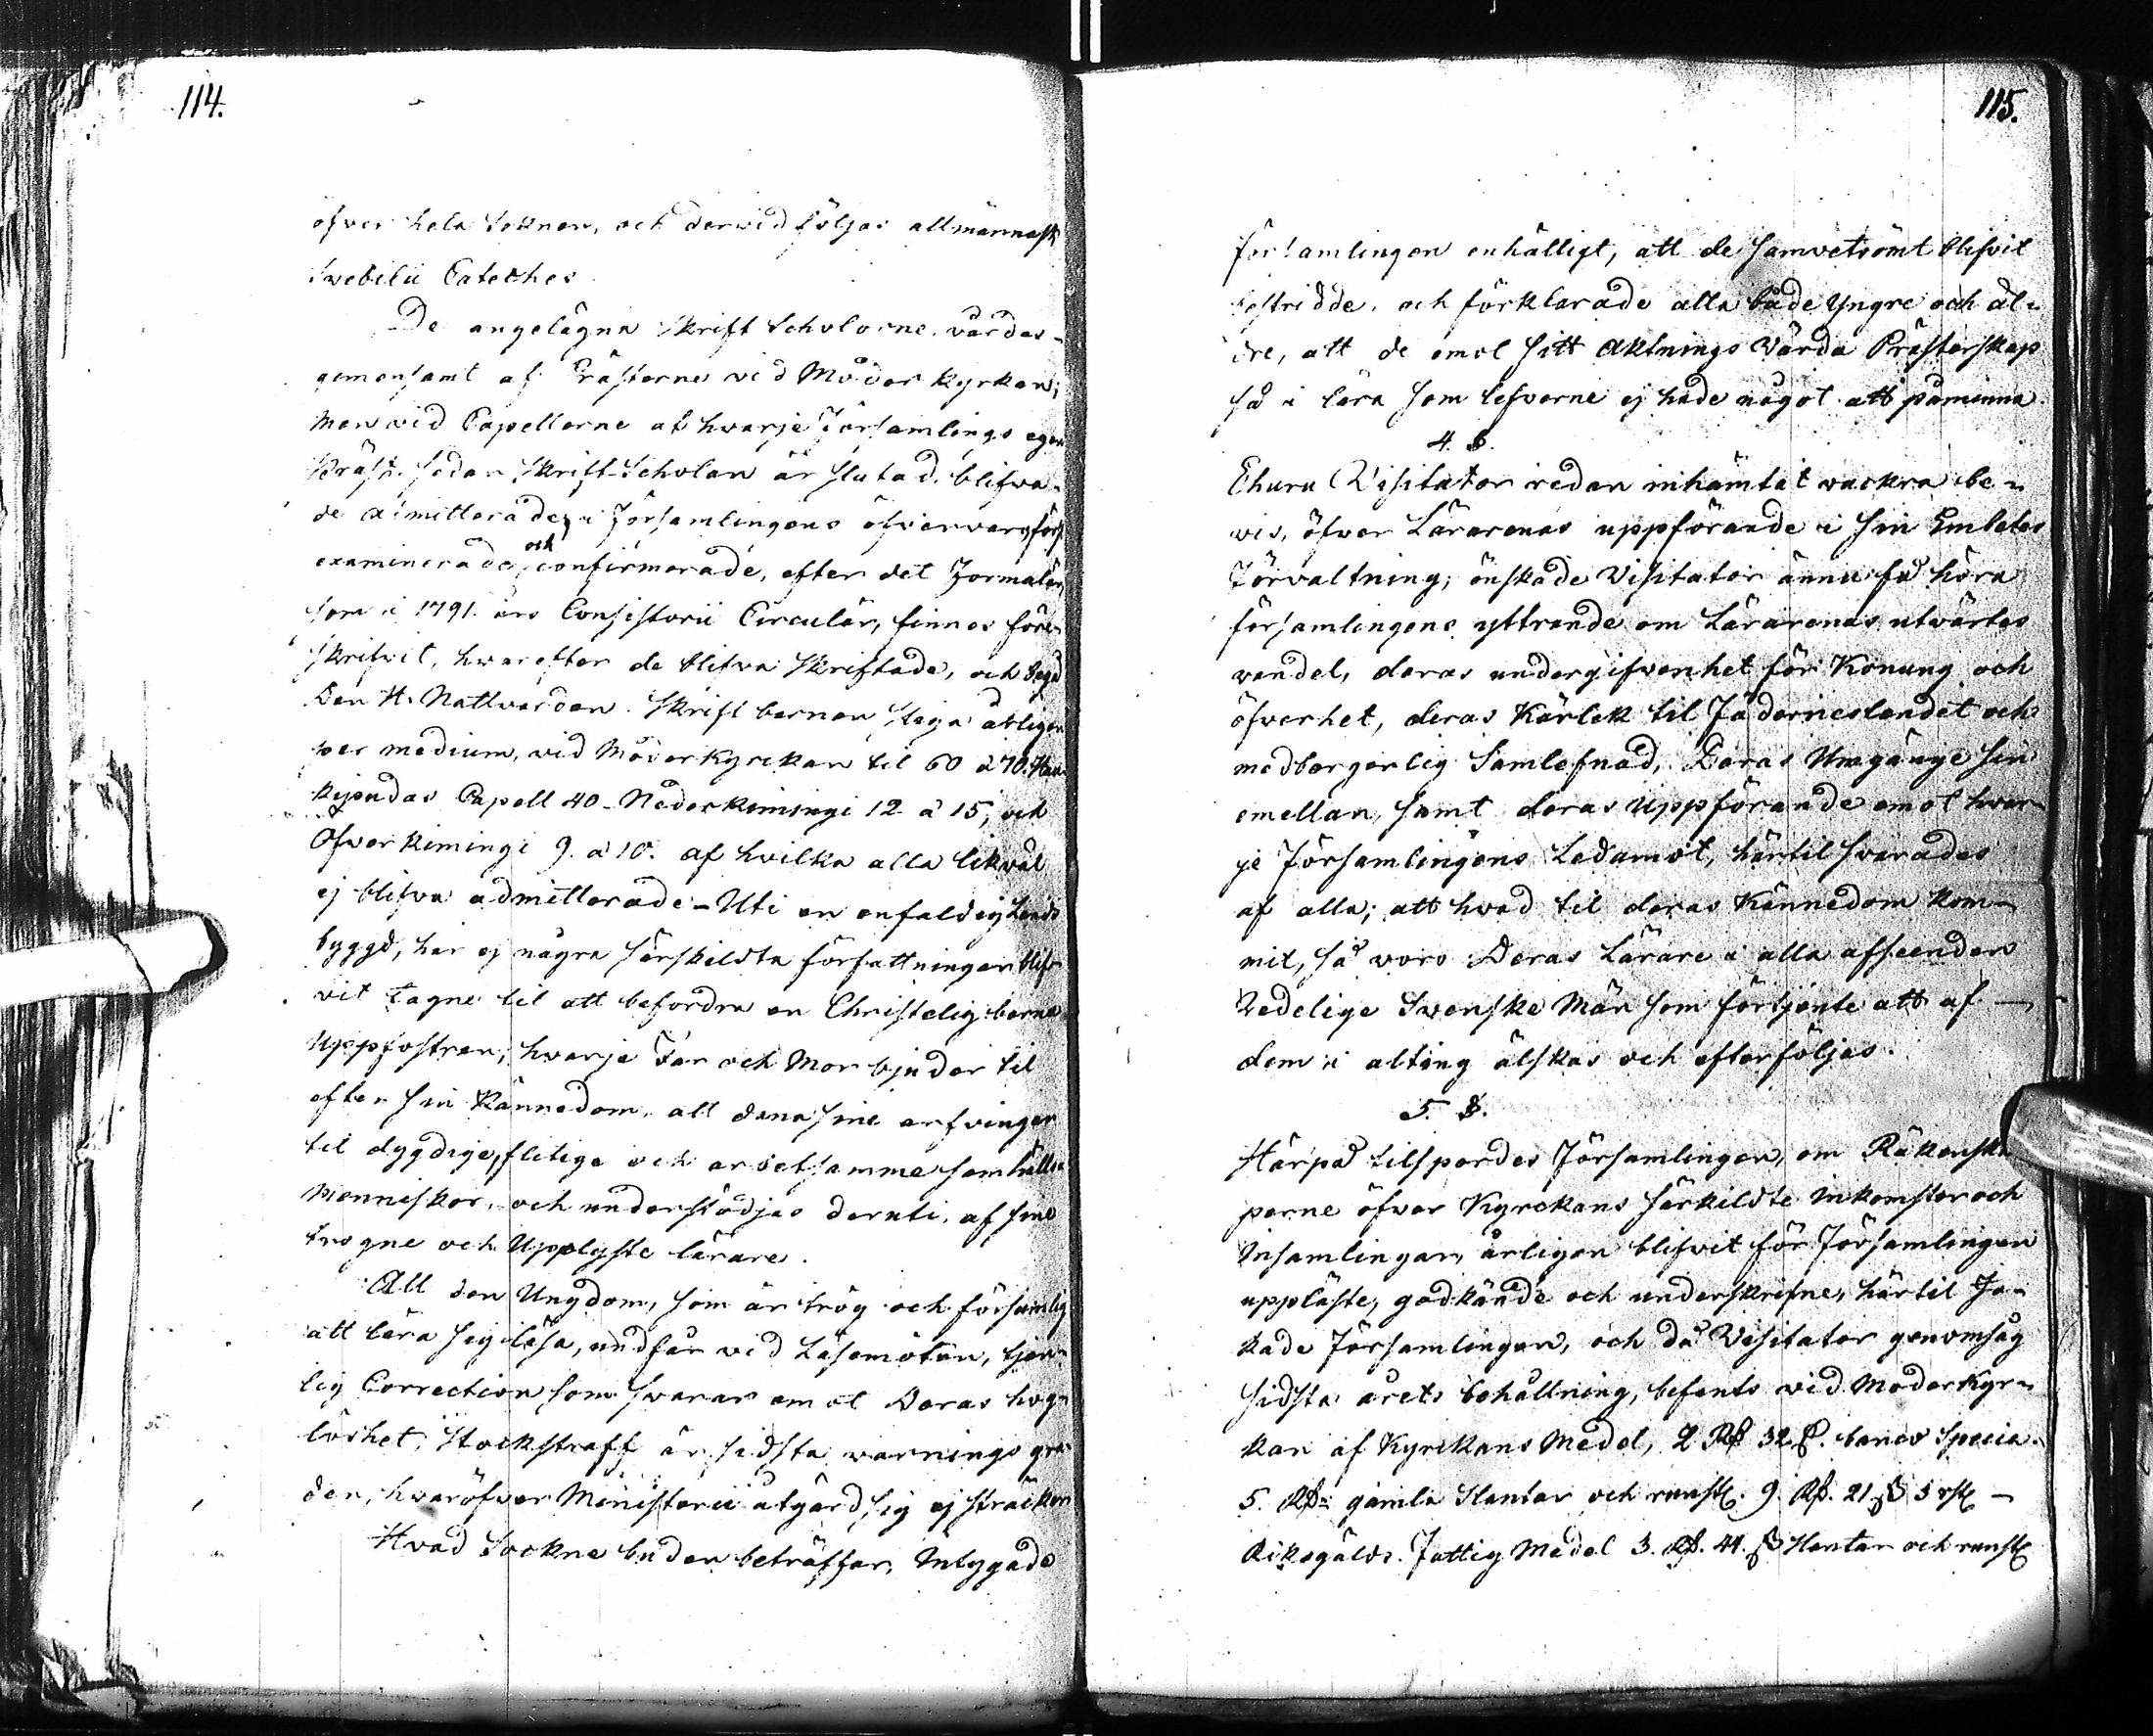 114.
öfver hela Soknen, och dervid följes allmännast
Svebilii Cateches
De angelägna Skrift Scholorne, vårdas
gemensamt af Prästerne vid Moder kyrkan,
Men vid Capellerne af hvarje Församlings egen
Präst. Sedan Skrift-Scholan är slutad, blifva
de admitterade, i Församlingens öfvervaro förh
examinerade, och confirmerade, efter det Formulär,
som i 1791. års Consistorii Circulär, finnes före-
skrifvit, hvarefter de blifva Skriftade, och begå
Den H. Nattvarden. Skrift barnen stiga årligen
per medium, vid Moderkyrckan til 60 à 70. Hau-
kipudas Capell 40 - Nederkimingi 12 à 15, och
Öfverkimingi 9. à 10. af hvilka alla likväl
ej blifva admitterade - Uti en enfaldig Lands
byggd, har ej några särskildta författningar blif-
vit tagne til att befordra en Christelig barna
Uppfostran; hvarje Far och Mor bjuder til
efter sin Kännedom, att dana sine arfvingar
til dygdige, flitige och arbetsamme samhälls
Menniskor, och understödjas deruti, af sine
trogne och Upplyste lärare.
All den Ungdom, som är trög och försumlig
att lära sig läsa, undfår vid Läsemöten, tjen-
lig Correction som svarar emot Deras hog-
löshet, Stockstraff är sidsta varnings gra-
den, hvaröfver Ministerii åtgärd sig ej sträcker
Hvad Sockne buden beträffar, Intygade
115.
församlingen enhälligt, att de samvetsömt blifvit
bestridde, och förklarade alla både Yngre och äl-
dre, att de emot sitt Aktnings Värda Prästerskap
så i lära som lefverne ej hade något att påminna.
4. §.
Ehuru Visitator redan inhämtat vackra be-
vis, öfver Lärarenas uppförande i sin Embetes
Förvaltning; önskade Visitator ännu få höra
församlingens yttrande om Lärarenas utvärtes
vandel, deras undergifvenhet för Konung och
öfverhet, deras Kärlek til Fäderneslandet och
medborgerlig Samlefnad, Deras Umgänge sin
emellan, samt deras Uppförande emot hvar-
je Församlingens Ledamot, härtil svarades
af alla; att hvad til deras Kännedom kom-
mit, så voro Deras Lärare i alla afseenden
Redelige Svenske Män som förtjente att af
dem i alting älskas och efterföljas.
5. §.
Härpå tilspordes Församlingen, om Räkenska
perne öfver Kyrckans särskildte Inkomster och
Insamlingar, årligen blifvit för Församlingen
uppläste, godkände och underskrifne, härtil Ja-
kade Församlingen, och då Visitator genomsåg
sidsta årets behållning, befants vid Moderkyr-
kan af Kyrckans Medel, 2 Rd 32 s. banco Specie
5. Rd. gamla Slantar och runst. 9. Rd. 21 s 3 rst -
Riksgälds. Fattig Medel 3. Rd. 44. s Slantar och runst